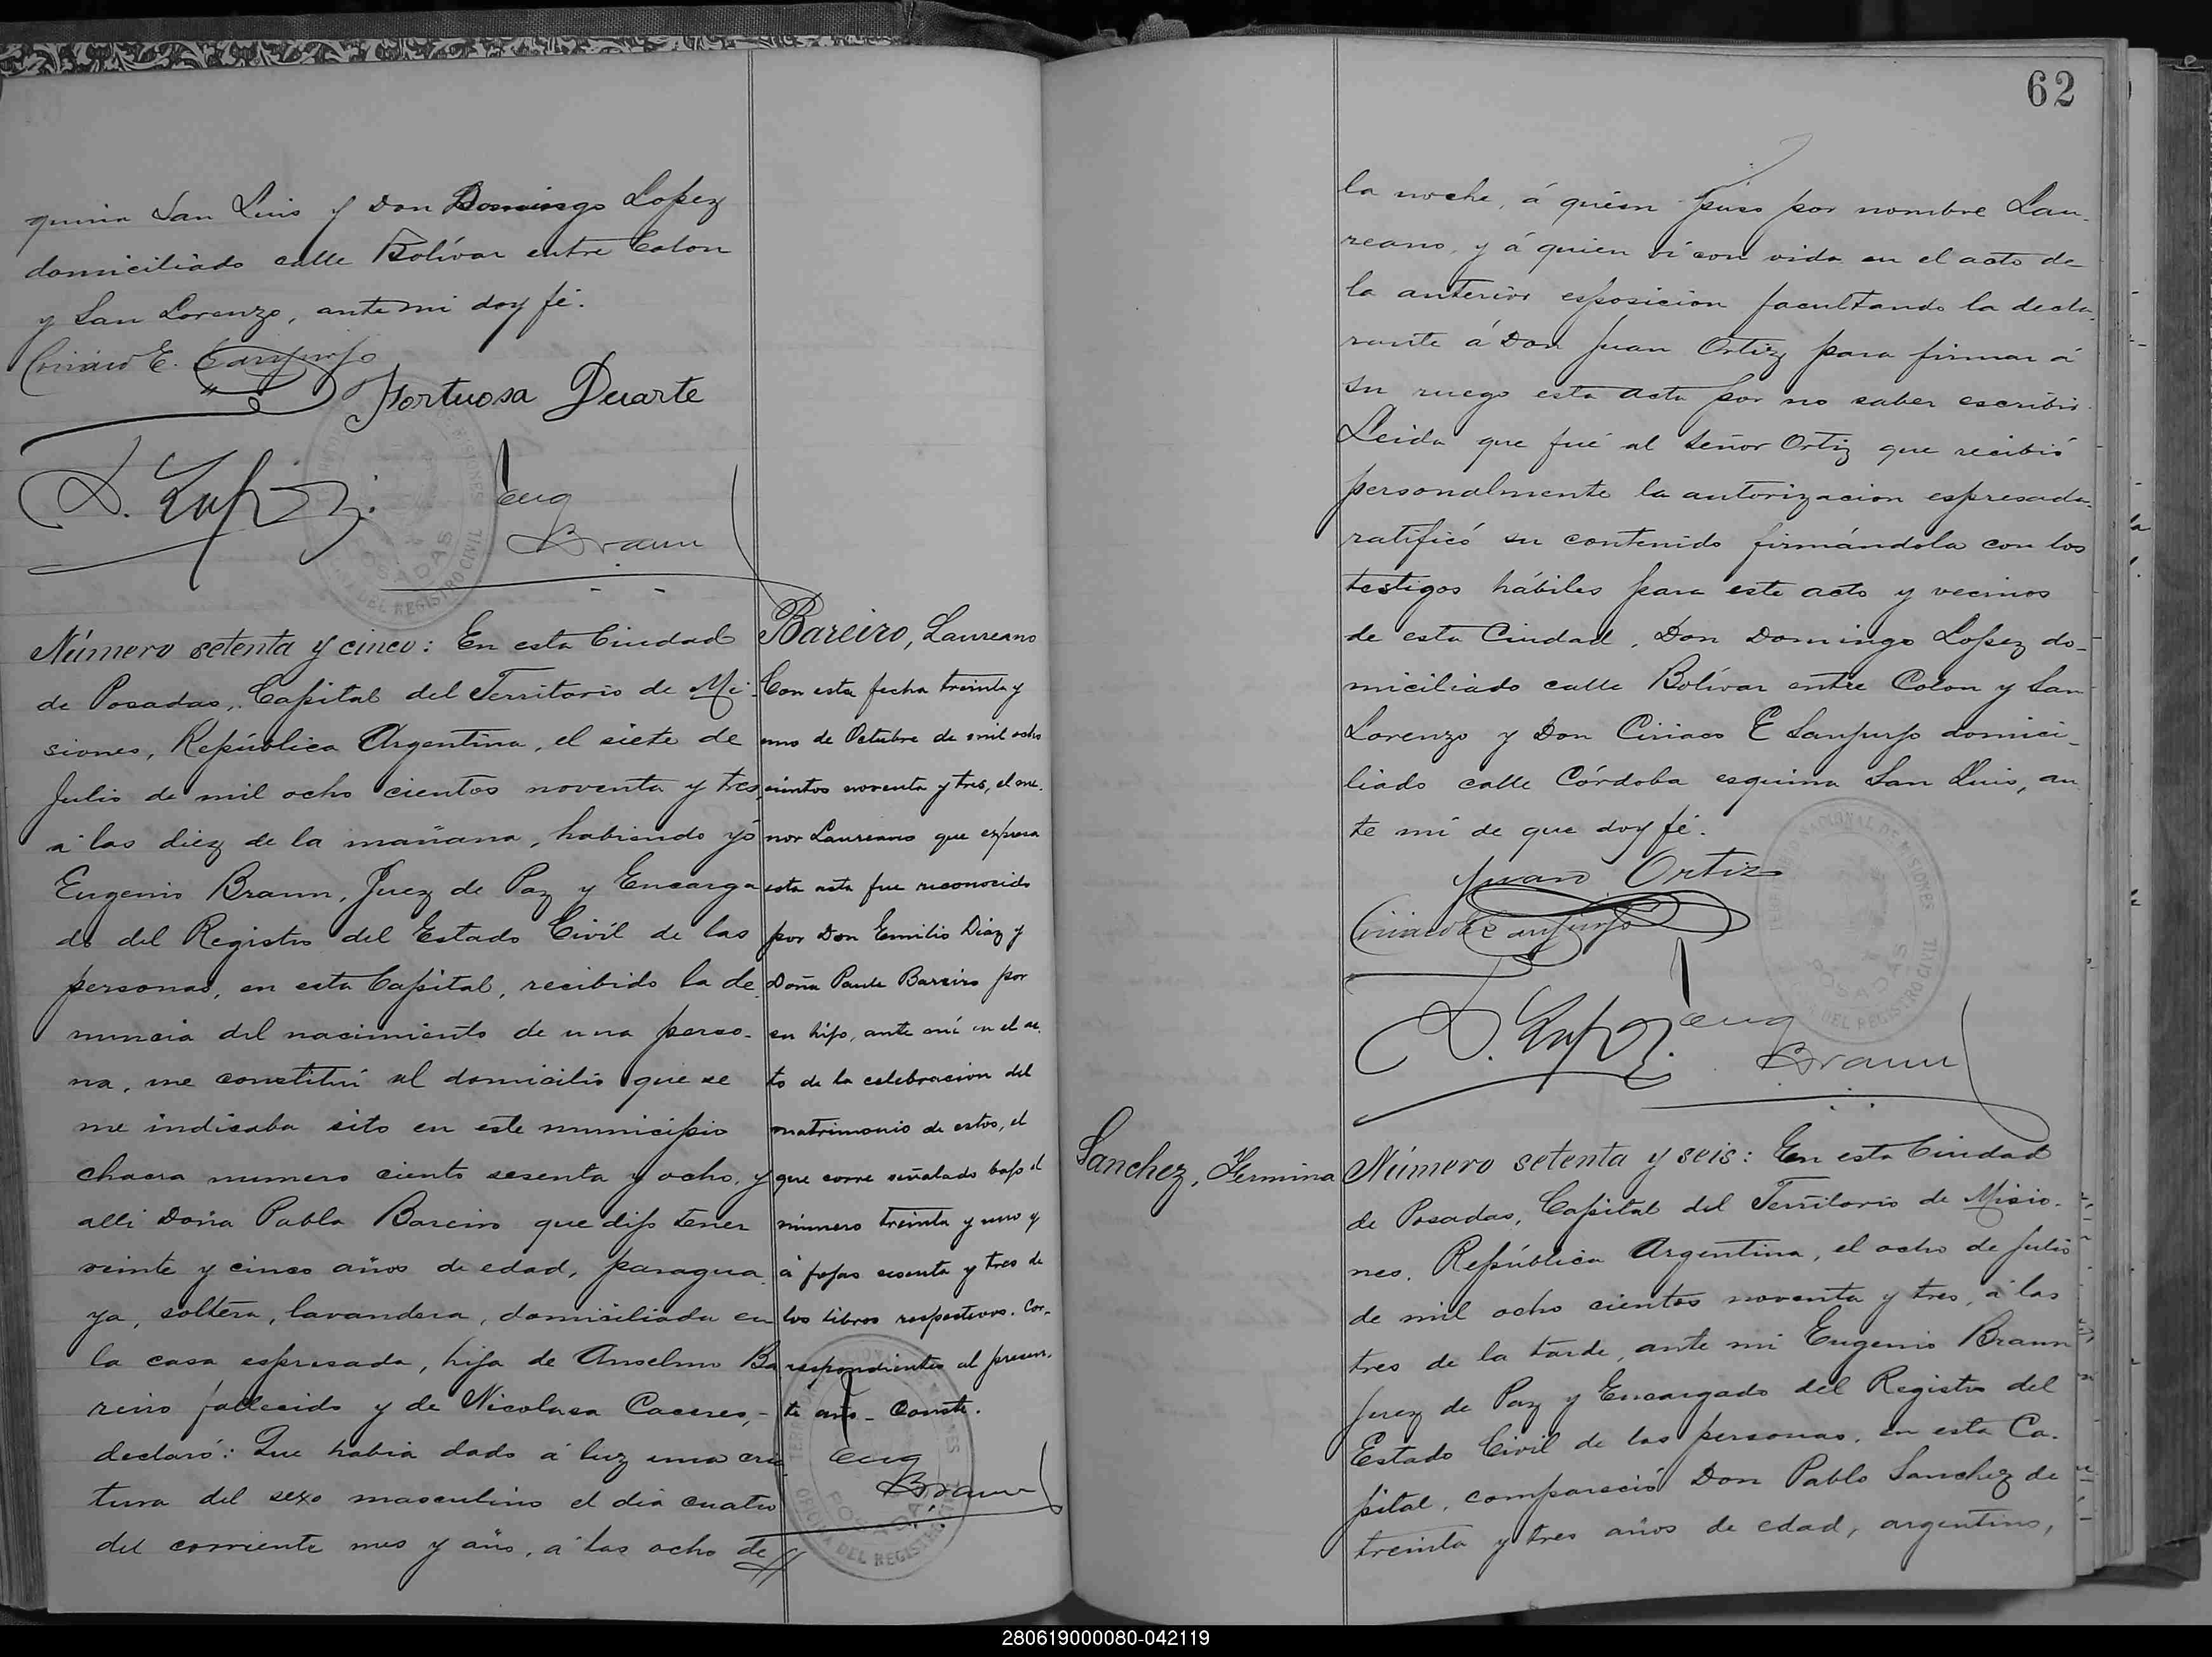 quina San Luis y Don Domingo Lopez
domiciliado calle Bolívar entre Colon
y San Lorenzo, ante mi doy fé.
Ciriaco E. Sanjurjo
Fortuosa Duarte
D. Lopez
Eug
Braun
Número setenta y cinco: En esta Ciudad
de Posadas, Capital del Territorio de Mi-
siones, República Argentina, el siete de
Julio de mil ocho cientos noventa y tres,
a las diez de la mañana, habiendo yó
Eugenio Braun, Juez de Paz y Encarga
do del Registro del Estado Civíl de las
personas, en esta Capital, recibido la de-
nuncia del nacimiento de una perso-
na, me constituí al domicilio que se
me indicaba sito en este municipio
chacra numero ciento sesenta y ocho, y
alli Doña Pabla Bareiro que dijo tener
veinte y cinco años de edad, paragua-
ya, soltera, lavandera, domiciliada en
la casa espresada, hija de Anselmo Ba
reiro fallecido y de Nicolasa Caceres,-
declaró: Que habia dado á luz una cria
tura del sexo masculino el dia cuatro
del corriente mes y año, a las ocho de //
Bareiro, Laureano
Con esta fecha treinta y
uno de Octubre de mil ocho
cientos noventa y tres, el me-
nor Laureano que expresa
esta acta fue reconocido
por Don Emilio Diaz y
Doña Paula Bareiro por
su hijo, ante mí en el ac-
to de la celebracion del
matrimonio de estos, el
que corre señalado bajo el
número treinta y uno y
á fojas sesenta y tres de
los libros respectivos. Cor-
respondientes al presen-
te año - Conste.
Eug
Braun
62
la noche, á quien puso por nombre Lau-
reano, y á quien ví con vida en el acto de
la anterior esposicion facultando la decla-
rante á Don Juan Ortiz para firmar á
su ruego esta acta por no saber escribir.
Leida que fué al Señor Ortiz que recibió
personalmente la autorizacion espresada
ratificó su contenido firmándola con los
testigos hábiles para este acto y vecinos
de esta Ciudad, Don Domingo Lopez do-
miciliado calle Bolívar entre Colon y San
Lorenzo y Don Ciriaco E Sanjurjo domici-
liado calle Córdoba esquina San Luis, an
te mí de que doy fé.
Juan Ortiz
Ciriaco E Sanjurjo
D. Lopez
Eug
Braun
Sanchez, Fermina
Número setenta y seis: En esta Ciudad
de Posadas, Capital del Territorio de Misio-
nes, República Argentina, el ocho de Julio
de mil ocho cientos noventa y tres, á las
tres de la tarde, ante mi Eugenio Braun
Juez de Paz y Encargado del Registro del
Estado Civil de las personas, en esta Ca-
pital, compareció Don Pablo Sanchez de
treinta y tres años de edad, argentino,
280619000080-042119